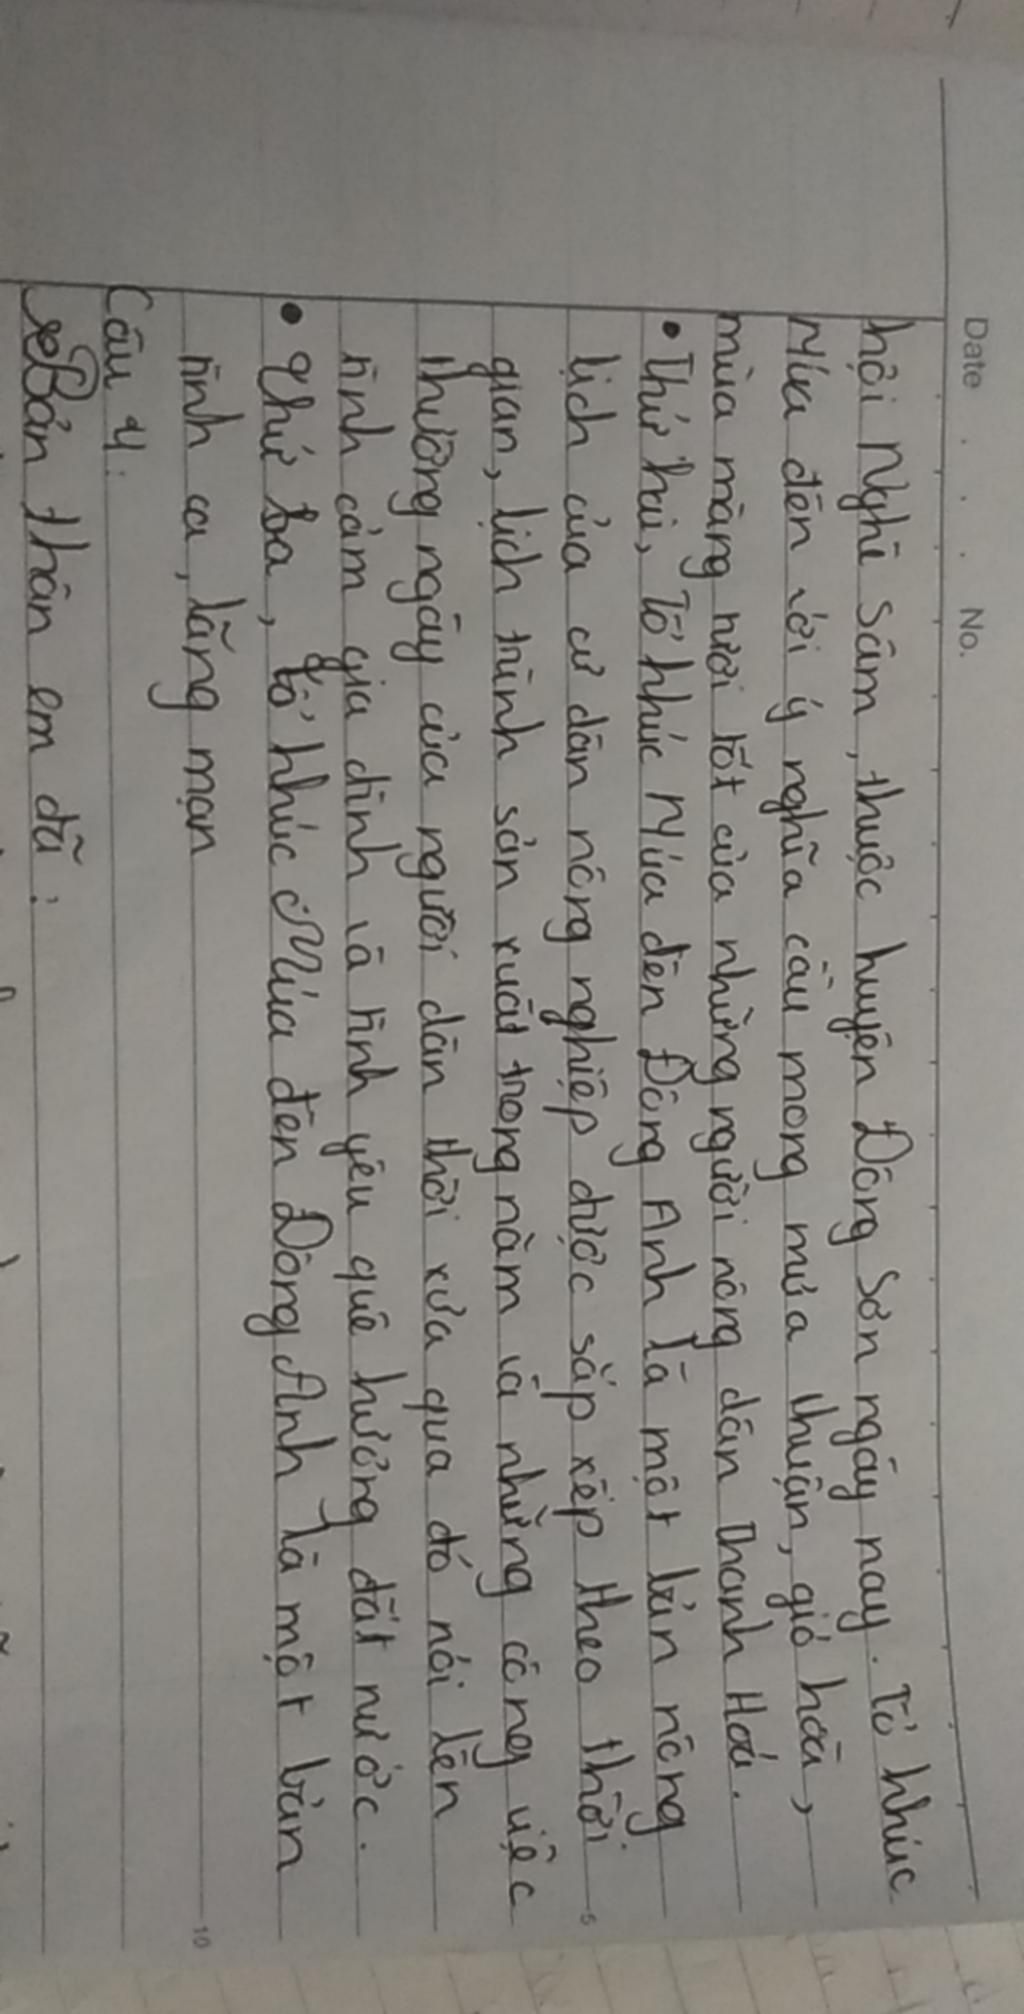 Date . . . No.
hội Nghè Sâm, thuộc huyện Đông Sơn ngày nay. Tổ khúc
Múa đèn với ý nghĩa cầu mong mưa thuận, gió hoà,
mùa màng tươi tốt của những người nông dân Thanh Hoá.
• Thứ hai, Tổ khúc Múa đèn Đông Anh là một bản nông
lịch của cư dân nông nghiệp được sắp xếp theo thời
gian, lịch trình sản xuất trong năm và những công việc
thường ngày của người dân thời xưa qua đó nói lên
tình cảm gia đình và tình yêu quê hương đất nước.
• Thứ ba, tổ khúc Múa đèn Đông Anh là một bản
tình ca, lãng mạn
Câu 4:
Bản thân em đã:
5
10